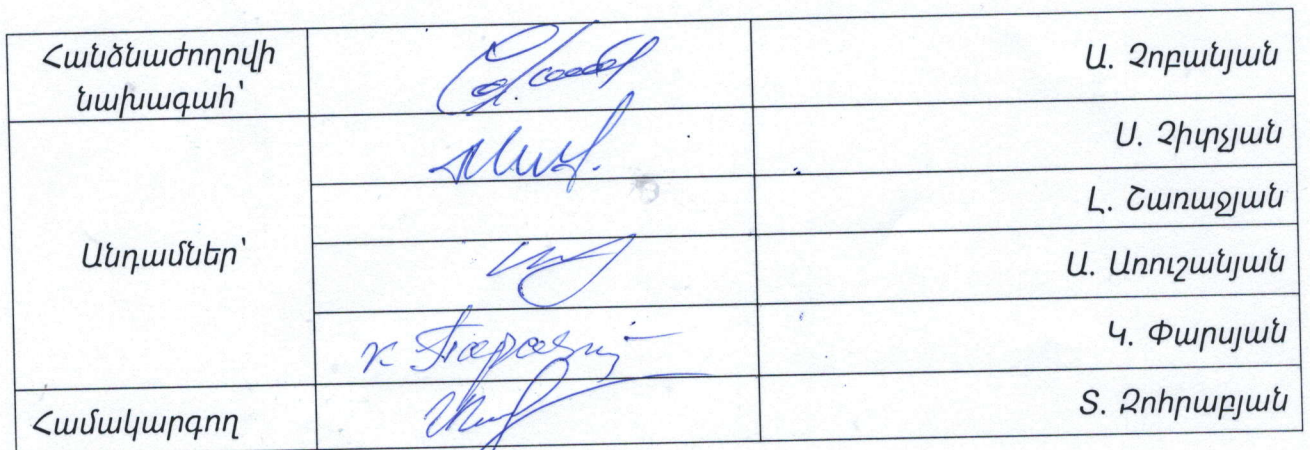 Հանձնաժողովի
նախագահ՝
Ա. Չոբանյան
Ս. Չիտչյան
Լ. Շառաջյան
Անդամներ՝
Ա. Առուշանյան
Կ. Փարսյան
Համակարգող
Տ. Զոհրաբյան